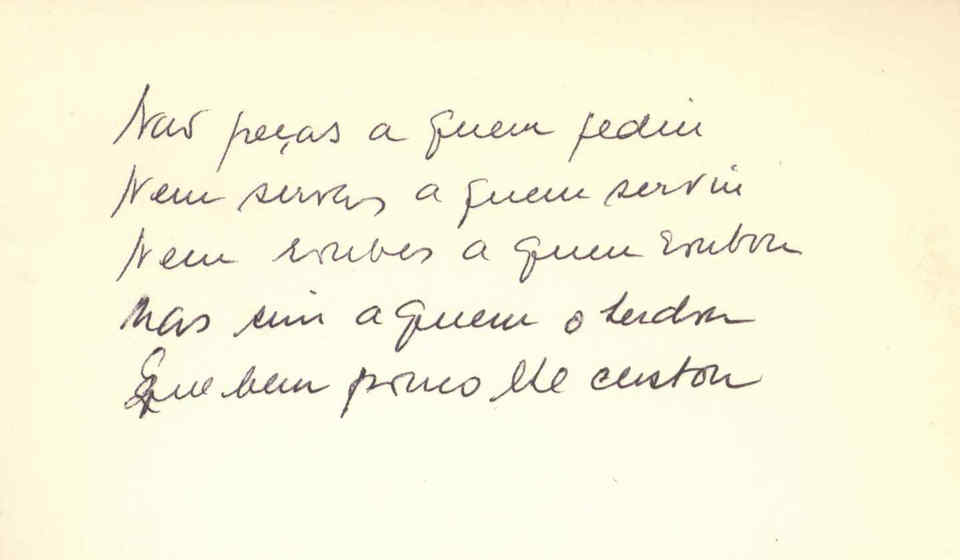 Não peças a quem pediu
Nem sirvas a quem serviu
Nem roubes a quem roubou
Mas sim a quem o herdou
Que bem pouco lhe custou